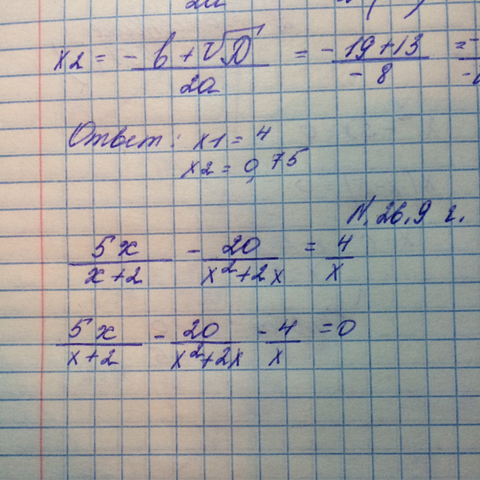 x2 = -b+√D / 2a = -19+13 / -8 =
Ответ: x1 = 4
x2 = 0,75
N. 26.9 г.
5x / x+2 - 20 / x²+2x = 4 / x
5x / x+2 - 20 / x²+2x - 4 / x = 0